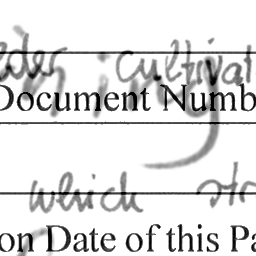 cultivat
Document Numb
which str
on Date of this Pa